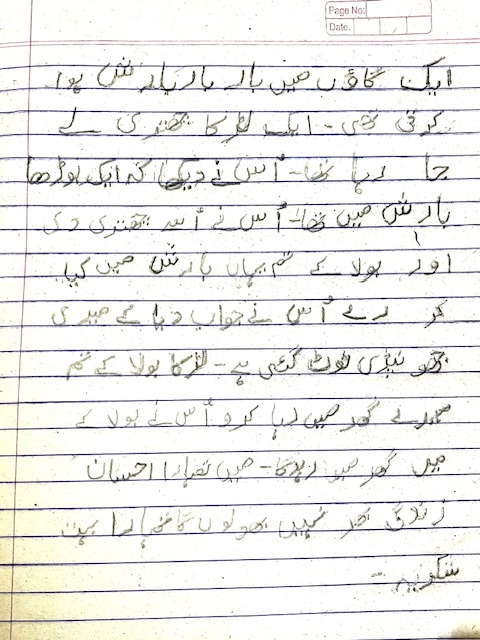 Page No:
Date.
ایک گاؤں میں بار بار بارش ہوا
کرتی تھی - ایک لڑکا چھتری لے
جا رہا تھا - اُس نے دیکھا کہ ایک بوڑھا
بارش میں تھا - اُس نے اُسے چھتری دی
اور بولا کے تم یہاں بارش میں کیا
کر رہے اُس نے جواب دیا کے میری
جھونپڑی ٹوٹ گئی ہے - لڑکا بولا کے تم
میرے گھر میں رہا کرو اُس نے بولا کے
میں گھر میں رہونگا - میں تمہارا احسان
زندگی بھر نہیں بھولوں گا تمہارا بہت
شکریہ -